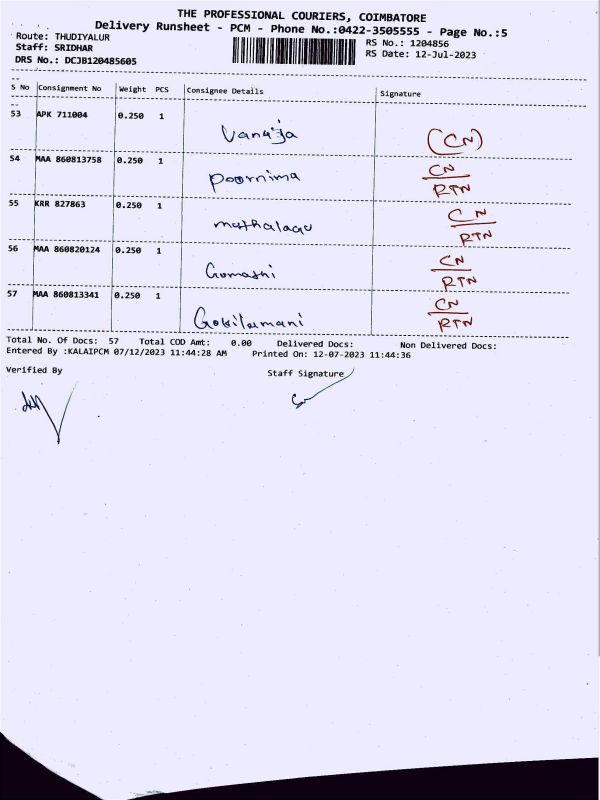 THE PROFESSIONAL COURIERS, COIMBATORE
Delivery Runsheet - PCM - Phone No.:0422-3505555 - Page No.:5
Route: THUDIYALUR
RS No.: 1204856
Staff: SRIDHAR
RS Date: 12-Jul-2023
DRS No.: DCJB120485605
S No Consignment No Weight PCS Consignee Details Signature
53 APK 711004 0.250 1 Vanaja (CN)
54 MAA 860813758 0.250 1 Poornima CN/RTN
55 KRR 827863 0.250 1 CN/RTN
56 MAA 860820124 0.250 1 Gomathi CN/RTN
57 MAA 860813341 0.250 1 Gokilamani CN/RTN
Total No. Of Docs: 57 Total COD Amt: 0.00 Delivered Docs: Non Delivered Docs:
Entered By :KALAIPCM 07/12/2023 11:44:28 AM Printed On: 12-07-2023 11:44:36
Verified By Staff Signature